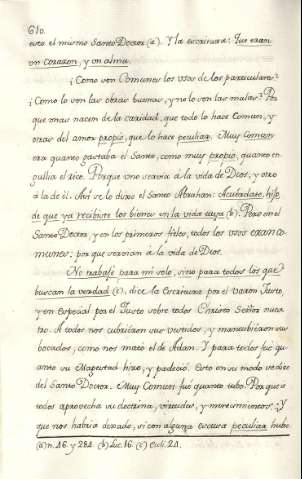 610.
esto el mismo Santo Doctor (a). Y la escritura: Fue eran
un corazon, y un alma.
¿Como ven Comunes los usos de los particulares?
¿Como lo son las obras buenas, y no lo son las malas? Por
que unas nacen de la caridad, que todo lo hace Comun, y
otras del amor propio, que lo hace peculiar. Muy Comun
era quanto gastaba el Santo, como muy propio, quanto en
gullia el rico. Porque uno servia à la vida de Dios, y otro
à la de él. Asi se lo dixo el Santo Abraham: Acuerdate, hijo,
de que ya recibiste los bienes en la vida tuya (b). Pero en el
Santo Doctor, y en los primeros fieles, todos los usos eran co
munes, por que servian à la vida de Dios.
No trabajé para mi solo, sino para todos los que
buscan la verdad (c), dice la Escritura por el varon Justo,
y en especial por el Justo sobre todos Christo Señor nues
tro. A todos nos cubrieron sus vestidos, y
bocados, como nos mató el de Adan. Y para todos fué qu
anto su Magestad hizo, y padeció. Esto en su modo se dice
del Santo Doctor. Muy Comun fué quanto tubo. Porque à
todos aprovecha su doctrina, virtudes, y merecimientos. ¿Y
que nos habria dexado, si con alguna cosa peculiar hubo
(a) n. 46. y 281. (b) Luc. 16. (c) Ecli. 24.